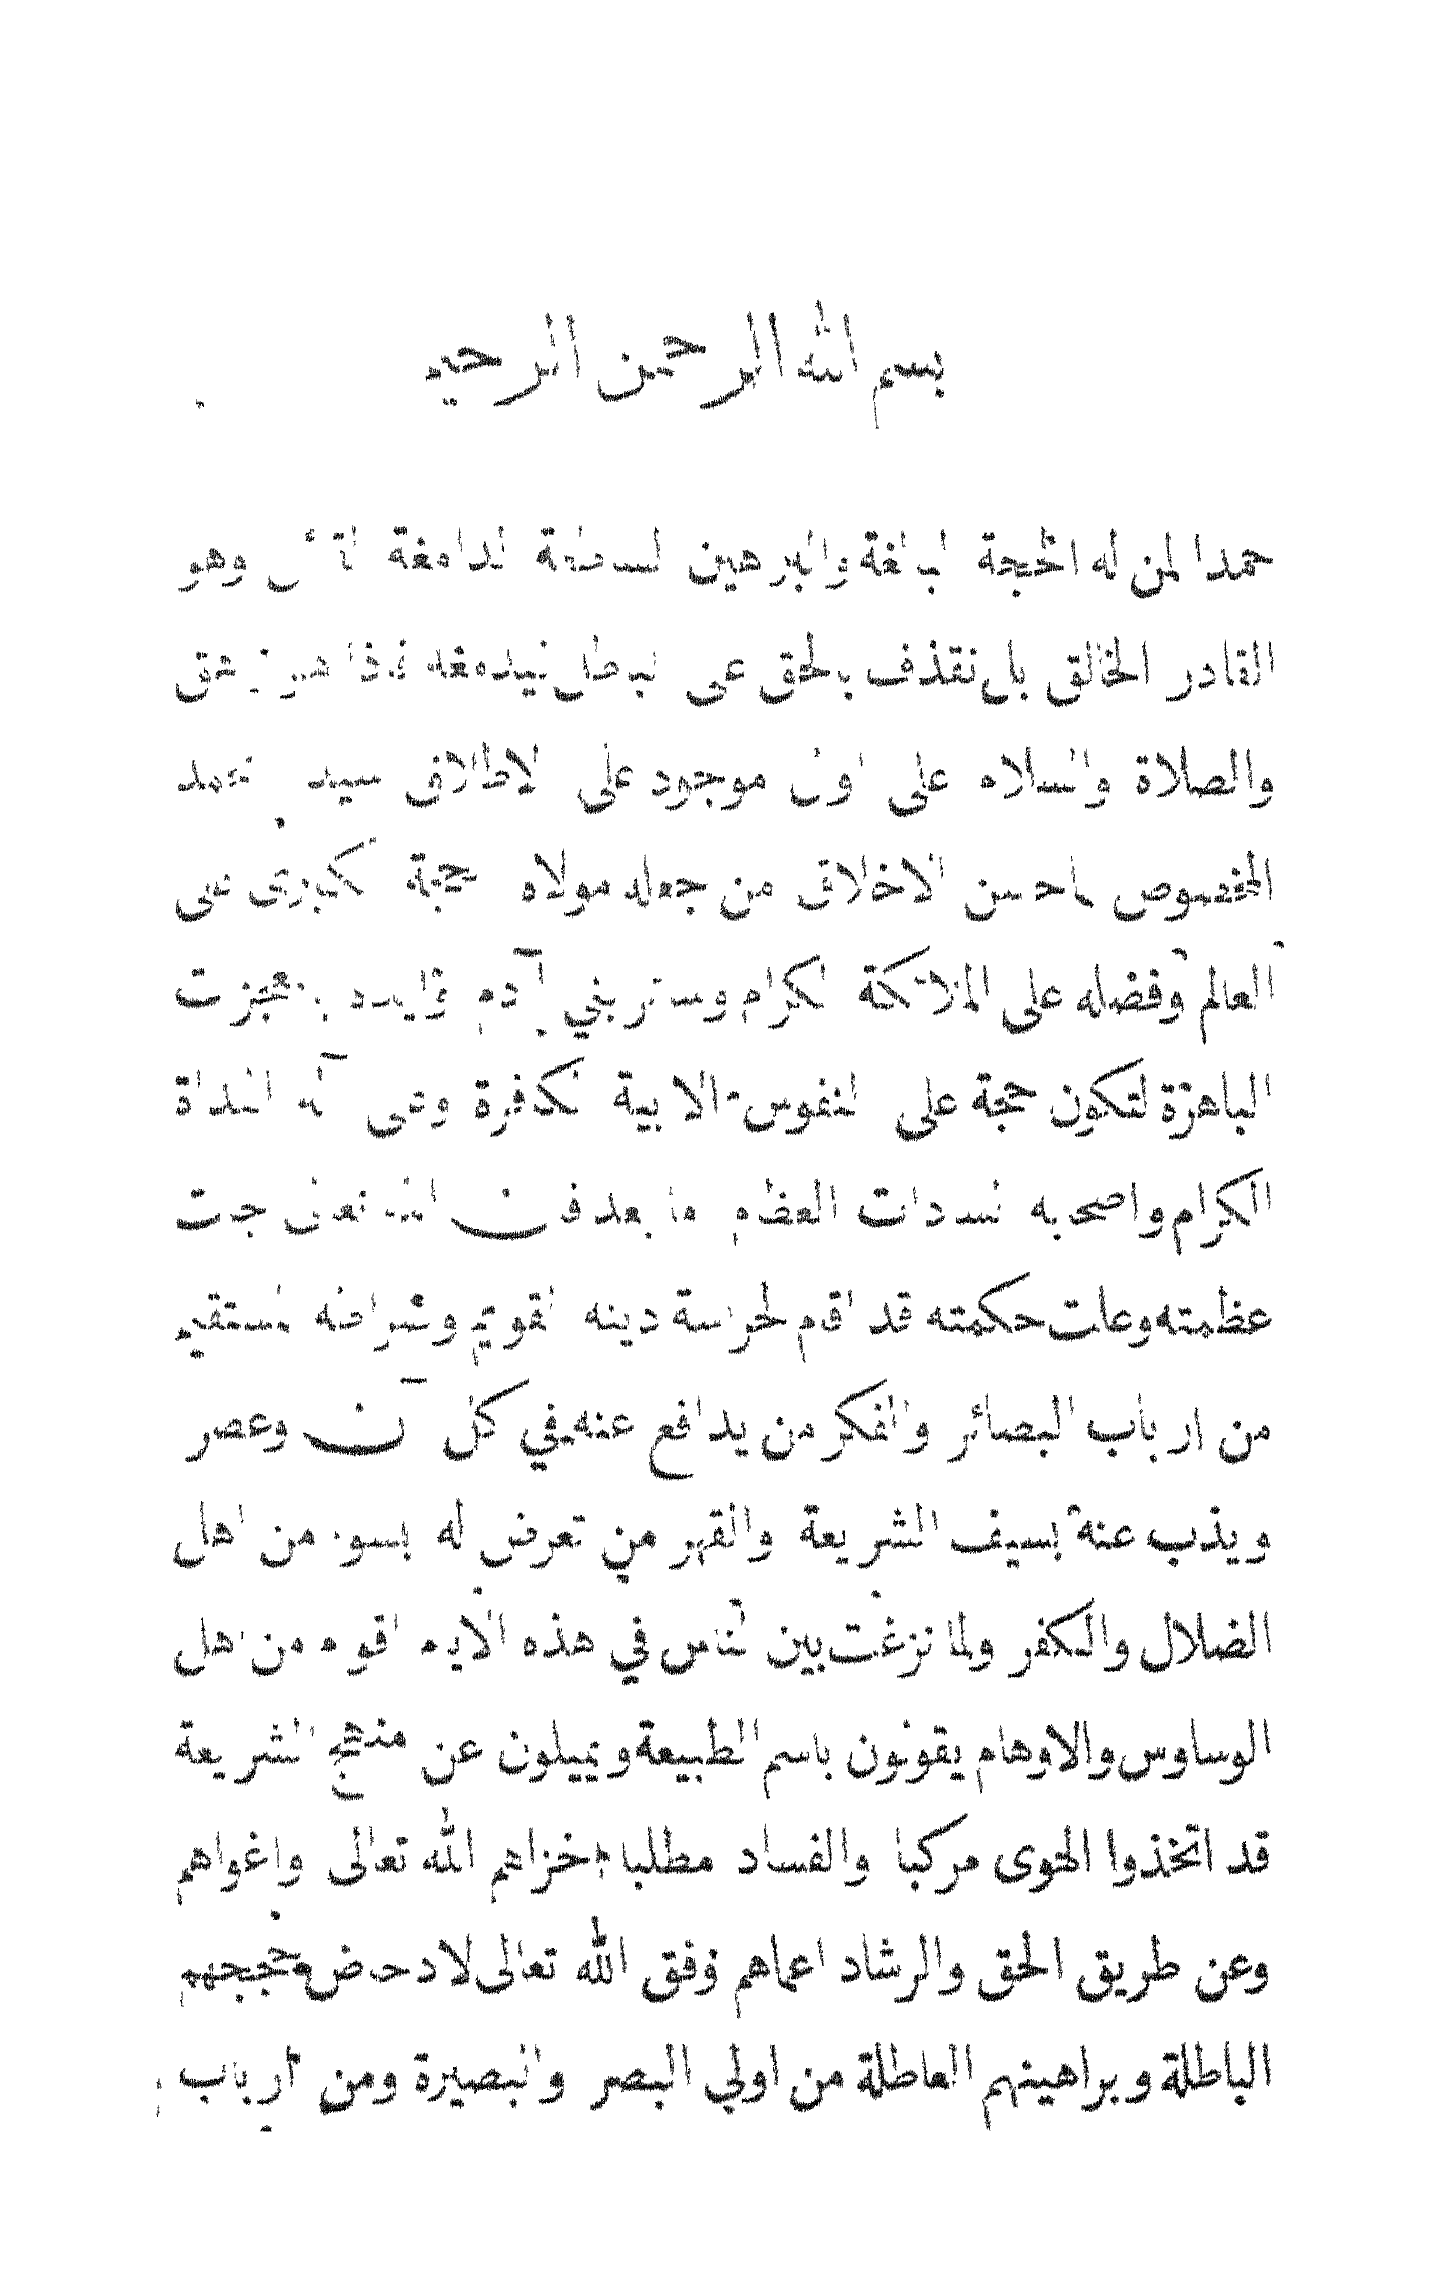 بسم الله الرحمن الرحيم
حمدا لمن له الحجة البالغة والبراهين الساطعة الدامغة وهو
القادر الخالق بل نقذف بالحق على الباطل فيدمغه فاذا هو زاهق
والصلاة والسلام على اول موجود على الاطلاق سيدنا محمد
المخصوص باحسن الاخلاق من جعله مولاه حجة كبرى على
العالم وفضله على الملائكة الكرام وسائر بني آدم وايده بمعجزات
الباهرة لتكون حجة على النفوس الابية الكافرة وعلى آله الهداة
الكرام واصحابه السادات العظام اما بعد فان الله تعالى جلت
عظمته وعلت حكمته قد اقام لحراسة دينه القويم وشراطه المستقيم
من ارباب البصائر والفكر من يدافع عنه في كل آن وعصر
ويذب عنه بسيف الشريعة والقهر من تعرض له بسوء من اهل
الضلال والكفر ولما نزغت بين الناس في هذه الايام اقوام من اهل
الوساوس والاوهام يقولون باسم الطبيعة ويميلون عن منهج الشريعة
قد اتخذوا الهوى مركبا والفساد مطلبا اخزاهم الله تعالى واغواهم
وعن طريق الحق والرشاد اعماهم وفق الله تعالى لادحاض حججهم
الباطلة وبراهينهم العاطلة من اولي البصر والبصيرة ومن ارباب